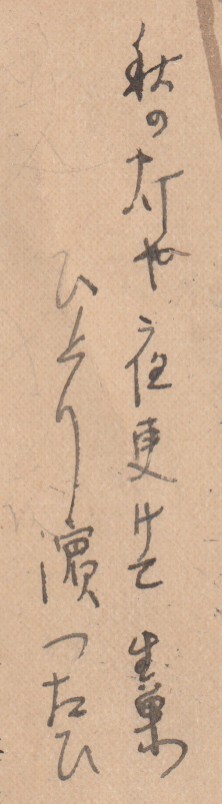 秋の灯や夜更けて生菓
ひとり濱つたひ